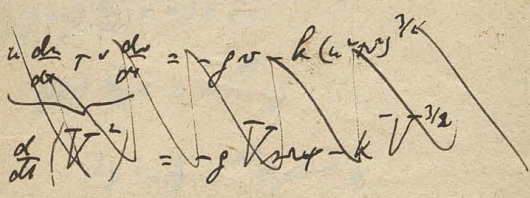 u du/dt + v dv/dt = -gv - k(u²+v²)^3/2
d/dt (V²) = -g V sin φ - k V^3/2